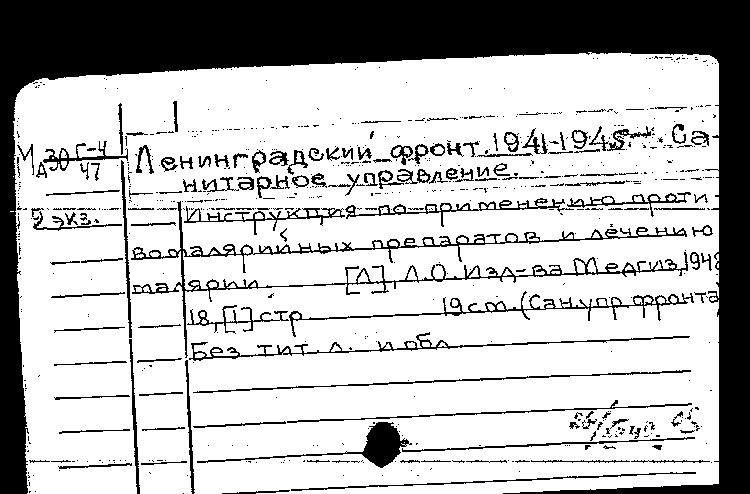 Ленинградский фронт. 1941-1945. Са-
нитарное управление.
2 экз.
Инструкция по применению проти-
вомалярийных препаратов и лечению
малярии. [Л], Л.О. Изд-ва Медгиз, 194
18, [1] стр. 19 см. (Сан. упр. фронта)
Без тит. л. и обл.